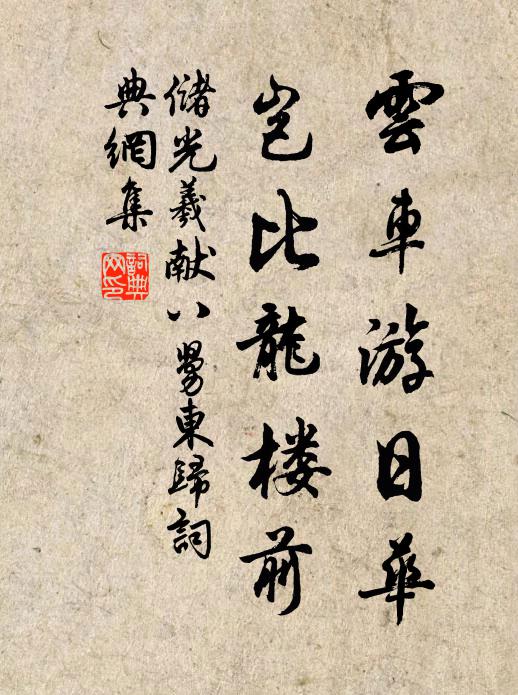 雲車游日華
豈比龍楼前
儲光羲献八舅東歸詞
典網集
詞典
网印